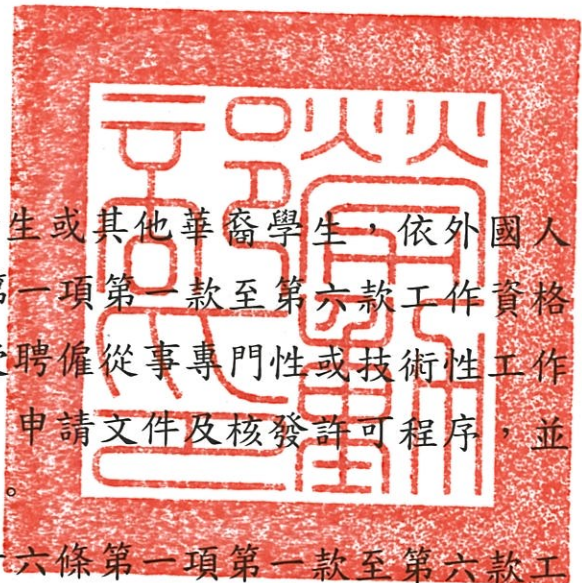 勞動部印
生或其他華裔學生，依外國人
第一項第一款至第六款工作資格
受聘僱從事專門性或技術性工作
申請文件及核發許可程序，並
。
十六條第一項第一款至第六款工